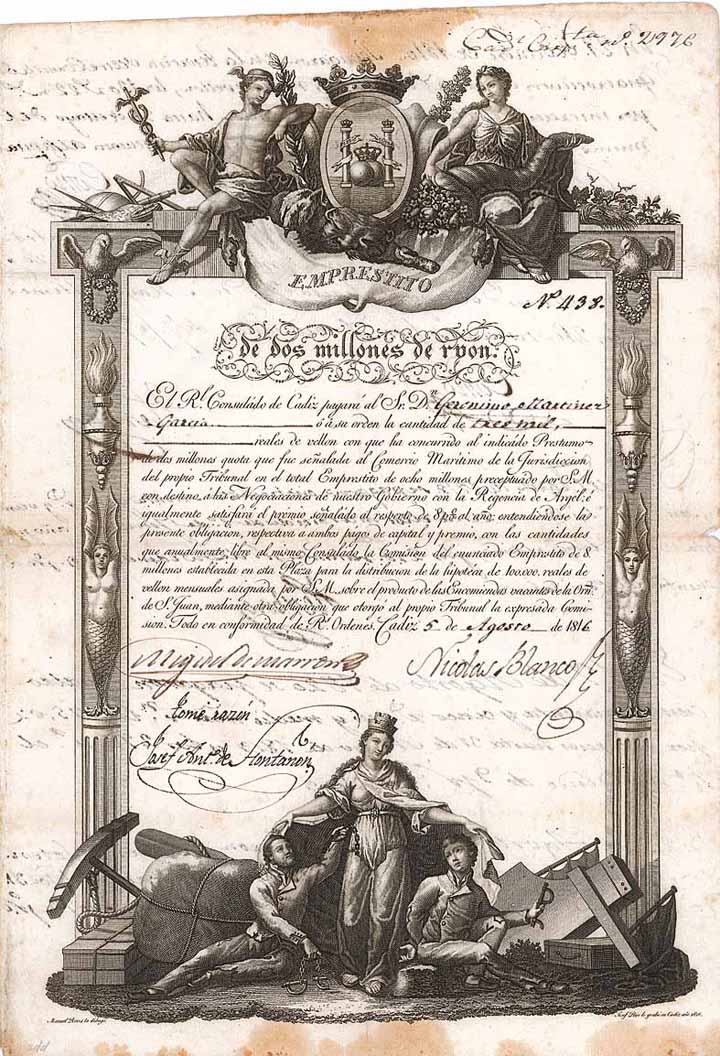 nº. 2976
EMPRESTITO
Nº. 438.
de dos millones de rvon.
El Rl. Consulado de Cadiz pagará al Sr. Dn. Geronimo Martinez
Garcia ó á su orden la cantidad de tres mil,
reales de vellon con que ha concurrido al indicado Prestamo
de dos millones quota que fue señalada al Comercio Maritimo de la Jurisdiccion
del propio Tribunal en el total Emprestito de ocho millones preceptuado por S.M.
con destino, á las Negociaciones de nuestro Gobierno con la Regencia de Argél: é
igualmente satisfará el premio señalado al respecto de 8 p% al año: entendiendose la
presente obligacion, respectiva a ambos pagos de capital y premio, con las cantidades
que anualmente libre al mismo Consulado la Comision del enunciado Emprestito de 8
millones establecida en esta Plaza para la distribucion de la hipoteca de 100.000. reales de
vellon mensuales asignada por S.M. sobre el producto de las Encomiendas vacantes de la Orn.
de S. Juan, mediante otra obligacion que otorgó al propio Tribunal la expresada Comi-
sion. Todo en conformidad de Rs. Ordenes. Cadiz 5 de Agosto de 1816
Nicolas Blanco
Tomé razón
Josef Antº. de